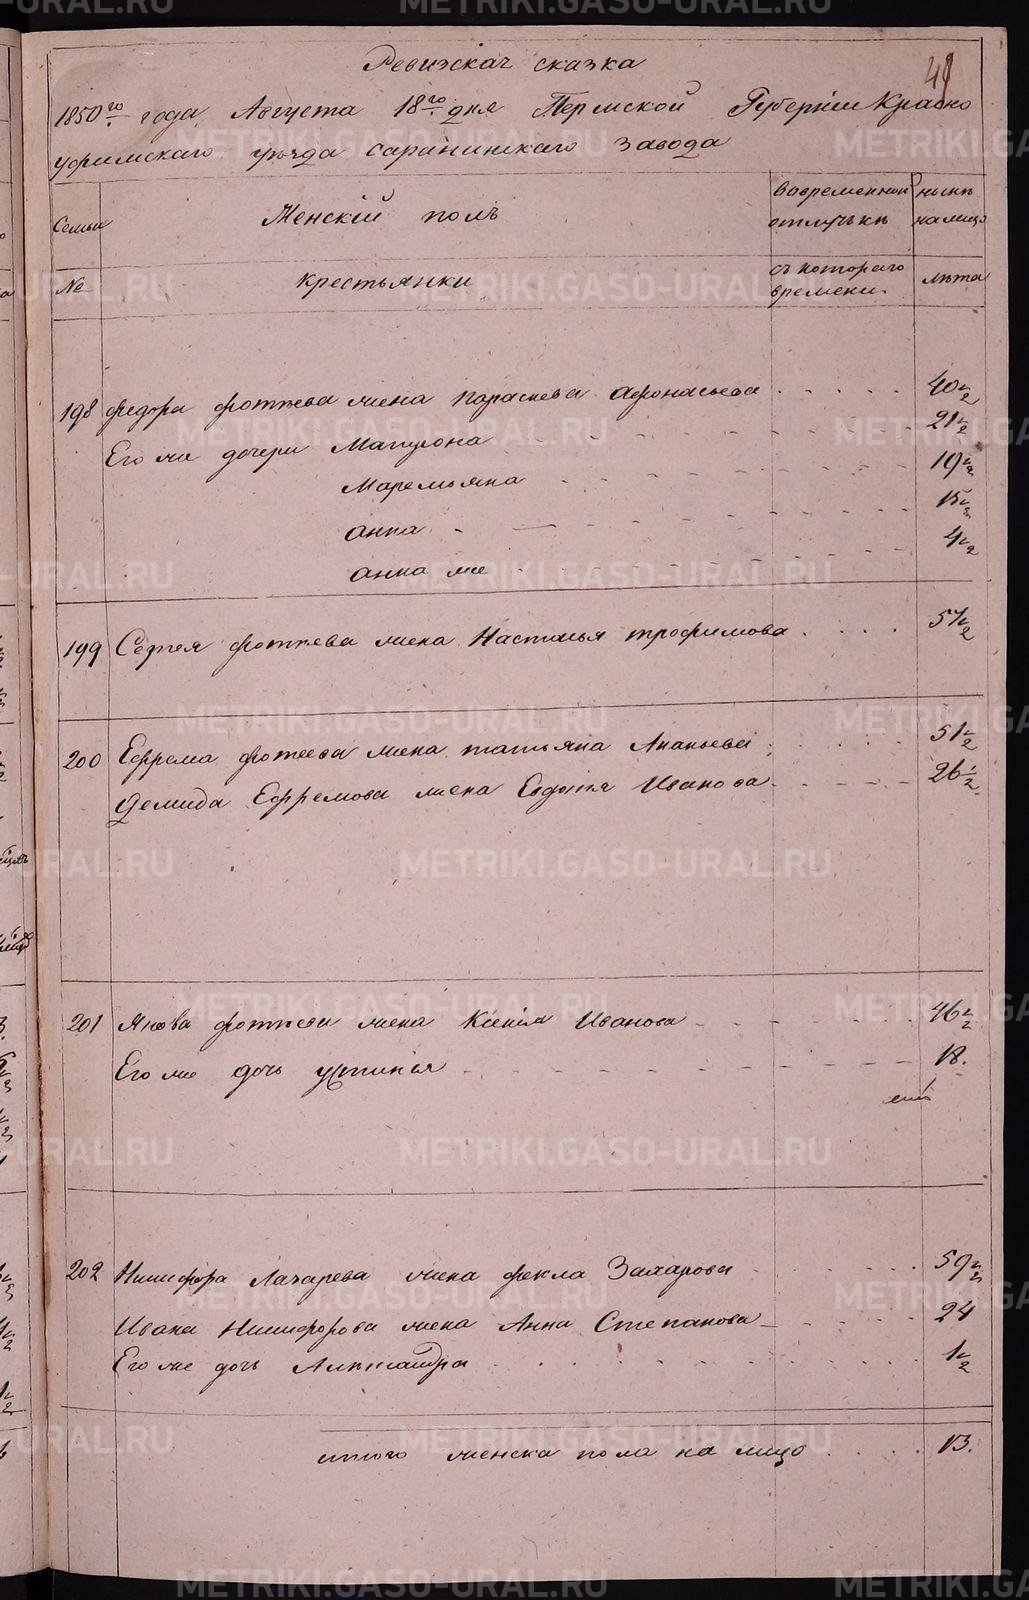 Ревизскач сказка
41
1850го года Августа 18го дня Пермской Губернiи Красно
уфимскаго уѣзда саранинскаго завода
Семьи
Женскiй полъ
вовременной отлучькѣ
нынѣ налицо
№
крестьянки
съ котораго времени.
лѣта
198 федора фотѣева жена параскева афонасьева 40½
Его же дочери Матрона 21½
Маремьяна 19½
анна 15½
анна же 4½
199 Сергея фотѣева жена Настасья трофимова 57½
200 Ефрема фотеева жена татьяна Ананьева 51½
Демида Ефремова жена Евдотiя Иванова 26½
201 Якова фотѣева жена Ксенiя Иванова 46½
Его же дочь устинiя 18.
202 Никифора Лазарева жена фекла Захарова 59½
Ивана Никифорова жена Анна Степанова 24
Его же дочь Александра 1½
итого женска пола на лицо 13.
METRIKI.GASO-URAL.RU